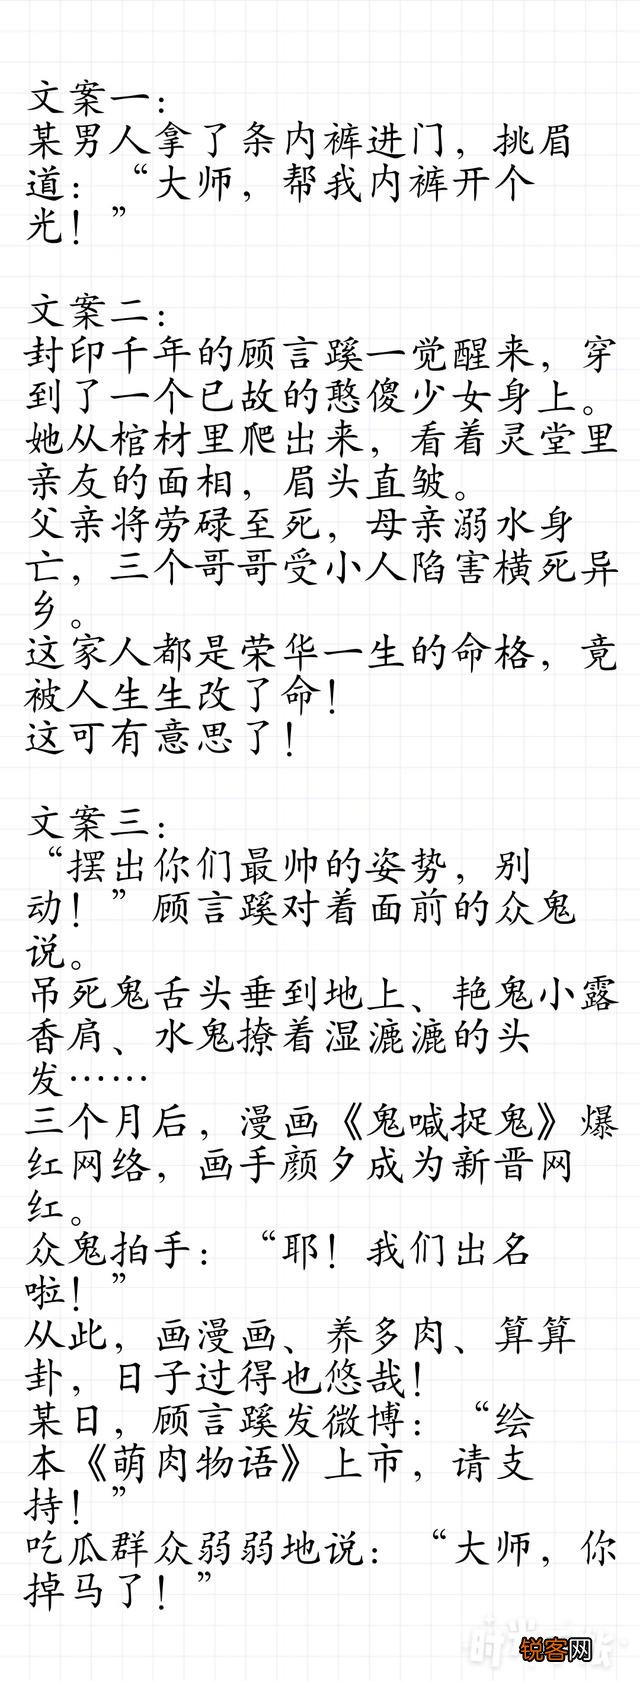 文案一：
某男人拿了条内裤进门，挑眉
道：“大师，帮我内裤开个
光！”
文案二：
封印千年的顾言蹊一觉醒来，穿
到了一个已故的憨傻少女身上。
她从棺材里爬出来，看着灵堂里
亲友的面相，眉头直皱。
父亲将劳碌至死，母亲溺水身
亡，三个哥哥受小人陷害横死异
乡。
这家人都是荣华一生的命格，竟
被人生生改了命！
这可有意思了！
文案三：
“摆出你们最帅的姿势，别
动！”顾言蹊对着面前的众鬼
说。
吊死鬼舌头垂到地上、艳鬼小露
香肩、水鬼撩着湿漉漉的头
发……
三个月后，漫画《鬼喊捉鬼》爆
红网络，画手颜夕成为新晋网
红。
众鬼拍手：“耶！我们出名
啦！”
从此，画漫画、养多肉、算算
卦，日子过得也悠哉！
某日，顾言蹊发微博：“绘
本《萌肉物语》上市，请支
持！”
吃瓜群众弱弱地说：“大师，你
掉马了！”
锐客网